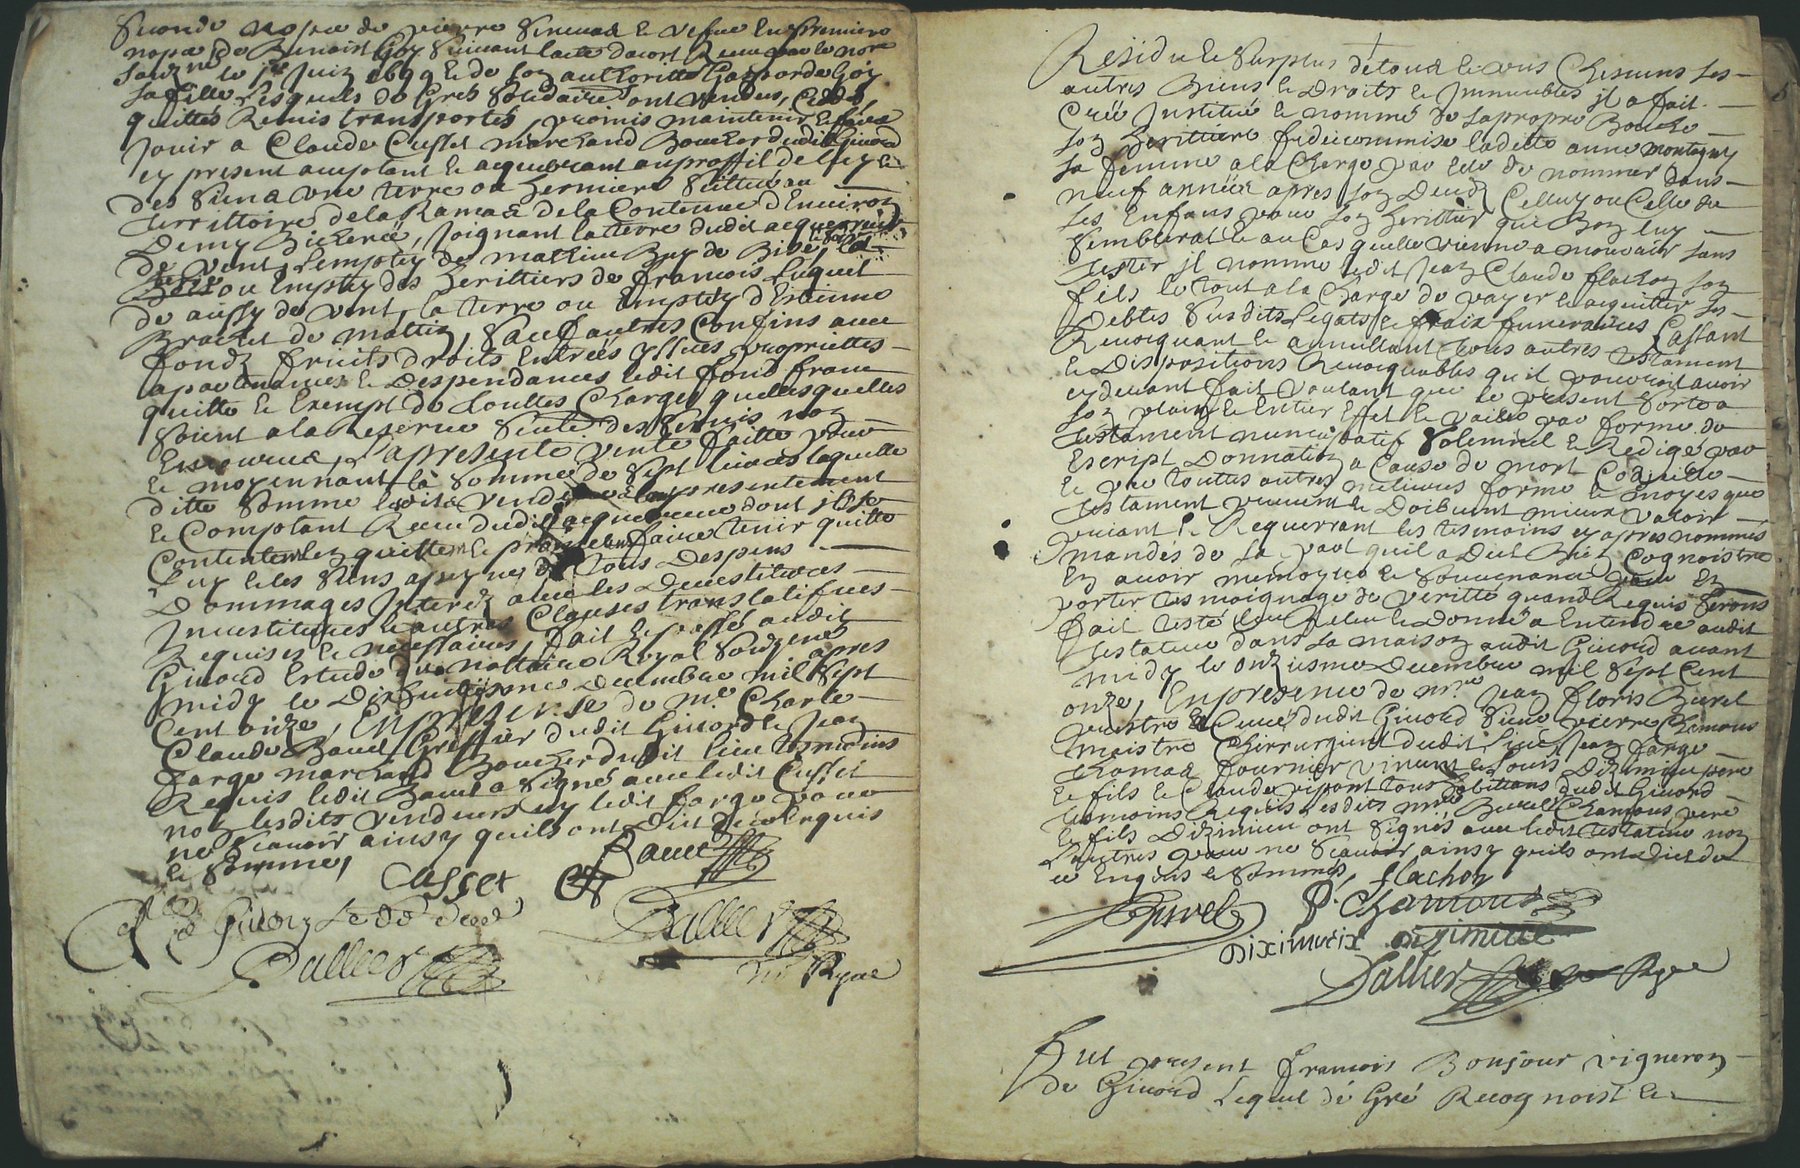 Seconde nopce de pierre Simead et vefve en premiere
nopce de Benoist Goy Suivant lacte dacort Receu par le no.re
Souz.né le juin 1699 et de son authoritté Gasparde Goy
Sa fille Lesquels de Gres Solidaires ont vendus, Ceddés,
quittés Remis transportés, promis maintenir et faire
Jouir a Claude Cusset marchand Boucher dudit Givord
cy present acceptant et acquerant au proffit de luy et
des Siens une terre ou hermiere Scittuée au
territtoire de la Ramas de la Contenue d'Environ
Demy Bicherée, Joignant la terre dudit acquereur
de vent, Lemptey de mathieu Buy de Bize, la
terre ou Emptey des heritiers de francois Luquet
de aussy de vent, la terre ou Emptey d'Estienne
Brachet de mattin, Sauf autres Confins avec
fondz fruits droits Entrées yssues, proprietties
apartenances et Despendances ledit fond franc
quitte et Exempt de touttes Charges quelles quelles
Soient a la Reserve Seule des Servis non
La presente vente faitte pour
et moyennant la Somme de Sept livres laquelle
ditte Somme lesdits vendeurs ont presentement
et Comptant Receu dudit acquereur dont ils se
Contentent Len quittent et promettent faire tenir quitte
Luy et les Siens a peyne de tous Despens
Dommages Interez avec les Devestitures
Investitures et autres Clauses translatifves
Requises et necessaires, fait et passé audit
Givord Estude du nottaire Royal Souz.né apres
midy le Dixhuitiesme Decembre mil Sept
Cent onze, En presence de M.re Charle
Claude Bavet Greffier dudit Givord et Jean
farge marchand Boucher dudit lieu tesmoins
Requis ledit Bavet a Signé avec ledit Cusset
non lesdits vendeurs ny ledit farge pour
ne Scavoir ainsy quils ont Dit de ce Enquis
et Sommés,
Cusset Bavet
Dallier Dallier
no.re Royal
Residu et Surplus de tous et uns Chescuns Ses
autres Biens et Droits et Immeubles il a fait
Créé Institué et nommé de Sa propre Bouche
Son heritiere fideicommise ladette anne montagny
Sa femme a la Charge par elle de nommer dans
neuf années apres Son Deceds Celluy ou Celle de
Ses Enfans pour Son heritier que Bon luy
Semblerat et au Cas quelle vienne a mourir Sans
tester il nomme ledit Jean Claude flachon Son
fils, le tout a la Charge de payer et acquitter Ses
Debtes Susdits Legats et fraix funeraires Cassant
Revocquant et annullant tous autres testament
et Dispositions Revocquables qu'il pourroit avoir
cy devant fait voulant que le present Sorte a
Son plain et Entier Effet et vaille par forme de
testament nuncupatif Solemnel et Redigé par
Escript Donnation a Cause de mort Codicille
et par touttes autres meilieures forme et moyes que
testament peuvent et Doibvent mieux valoir
priant et Requerrant les tesmoins cy apres nommés
mandés de Sa part quil a Dict Bien Cognoistre
En avoir memoyre et Souvenance pour En
porter tesmoignage de veritté quand Requis Seront
fait testé Leu Releu et Donné a Entendre audit
testateur dans Sa maison audit Givord avant
midy le onziesme Decembre mil Sept Cent
onze, En presence de m.re Jean floris Burel
prestre et Curé dudit Givord Sieur pierre Chamous
maistre Chirurgien dudit lieu, Jean farge
thomas fournier vincent et Louis Dizimieu pere
et fils et Claude ripont tous habittans dudit Givord
tesmoins Requis lesdits m.re Burel Chamous pere
et fils Dizimieu ont Signés avec ledit testateur non
Lautres pour ne Scavoir ainsy quils ont dict de
ce Enquis et Sommés,
flachon
Burel P. Chamous
Diximieix diximieu
Dallier no.re Royal
fut present francois Bonjour vigneron
de Givord Lequel de Gré Recognoist et